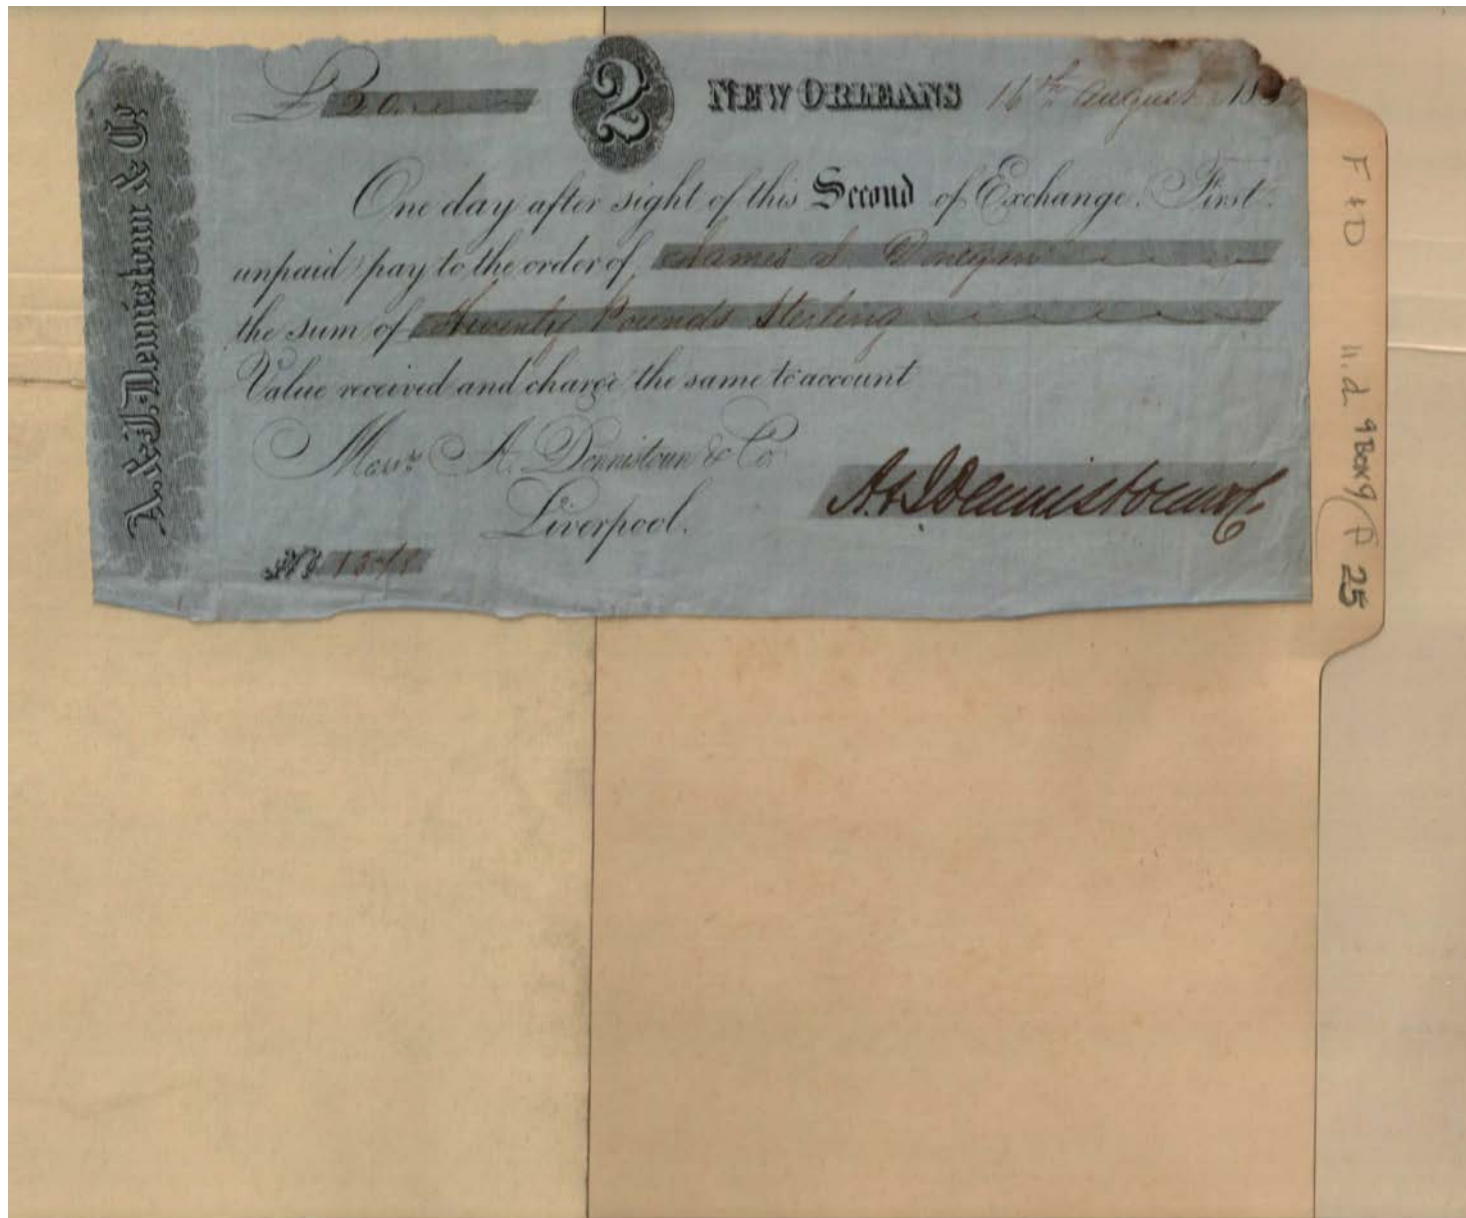 A. & J. Dennistoun & Co.
£ 20
2
NEW ORLEANS 16th August 18
One day after sight of this Second of Exchange. First
unpaid pay to the order of James J Donegan
the sum of Twenty Pounds Sterling
Value received and charge the same to account
Messrs. A. Dennistoun & Co.
Liverpool.
A. & J Dennistoun & Co
No
F & D
11.d 9 Box 9 / A 25